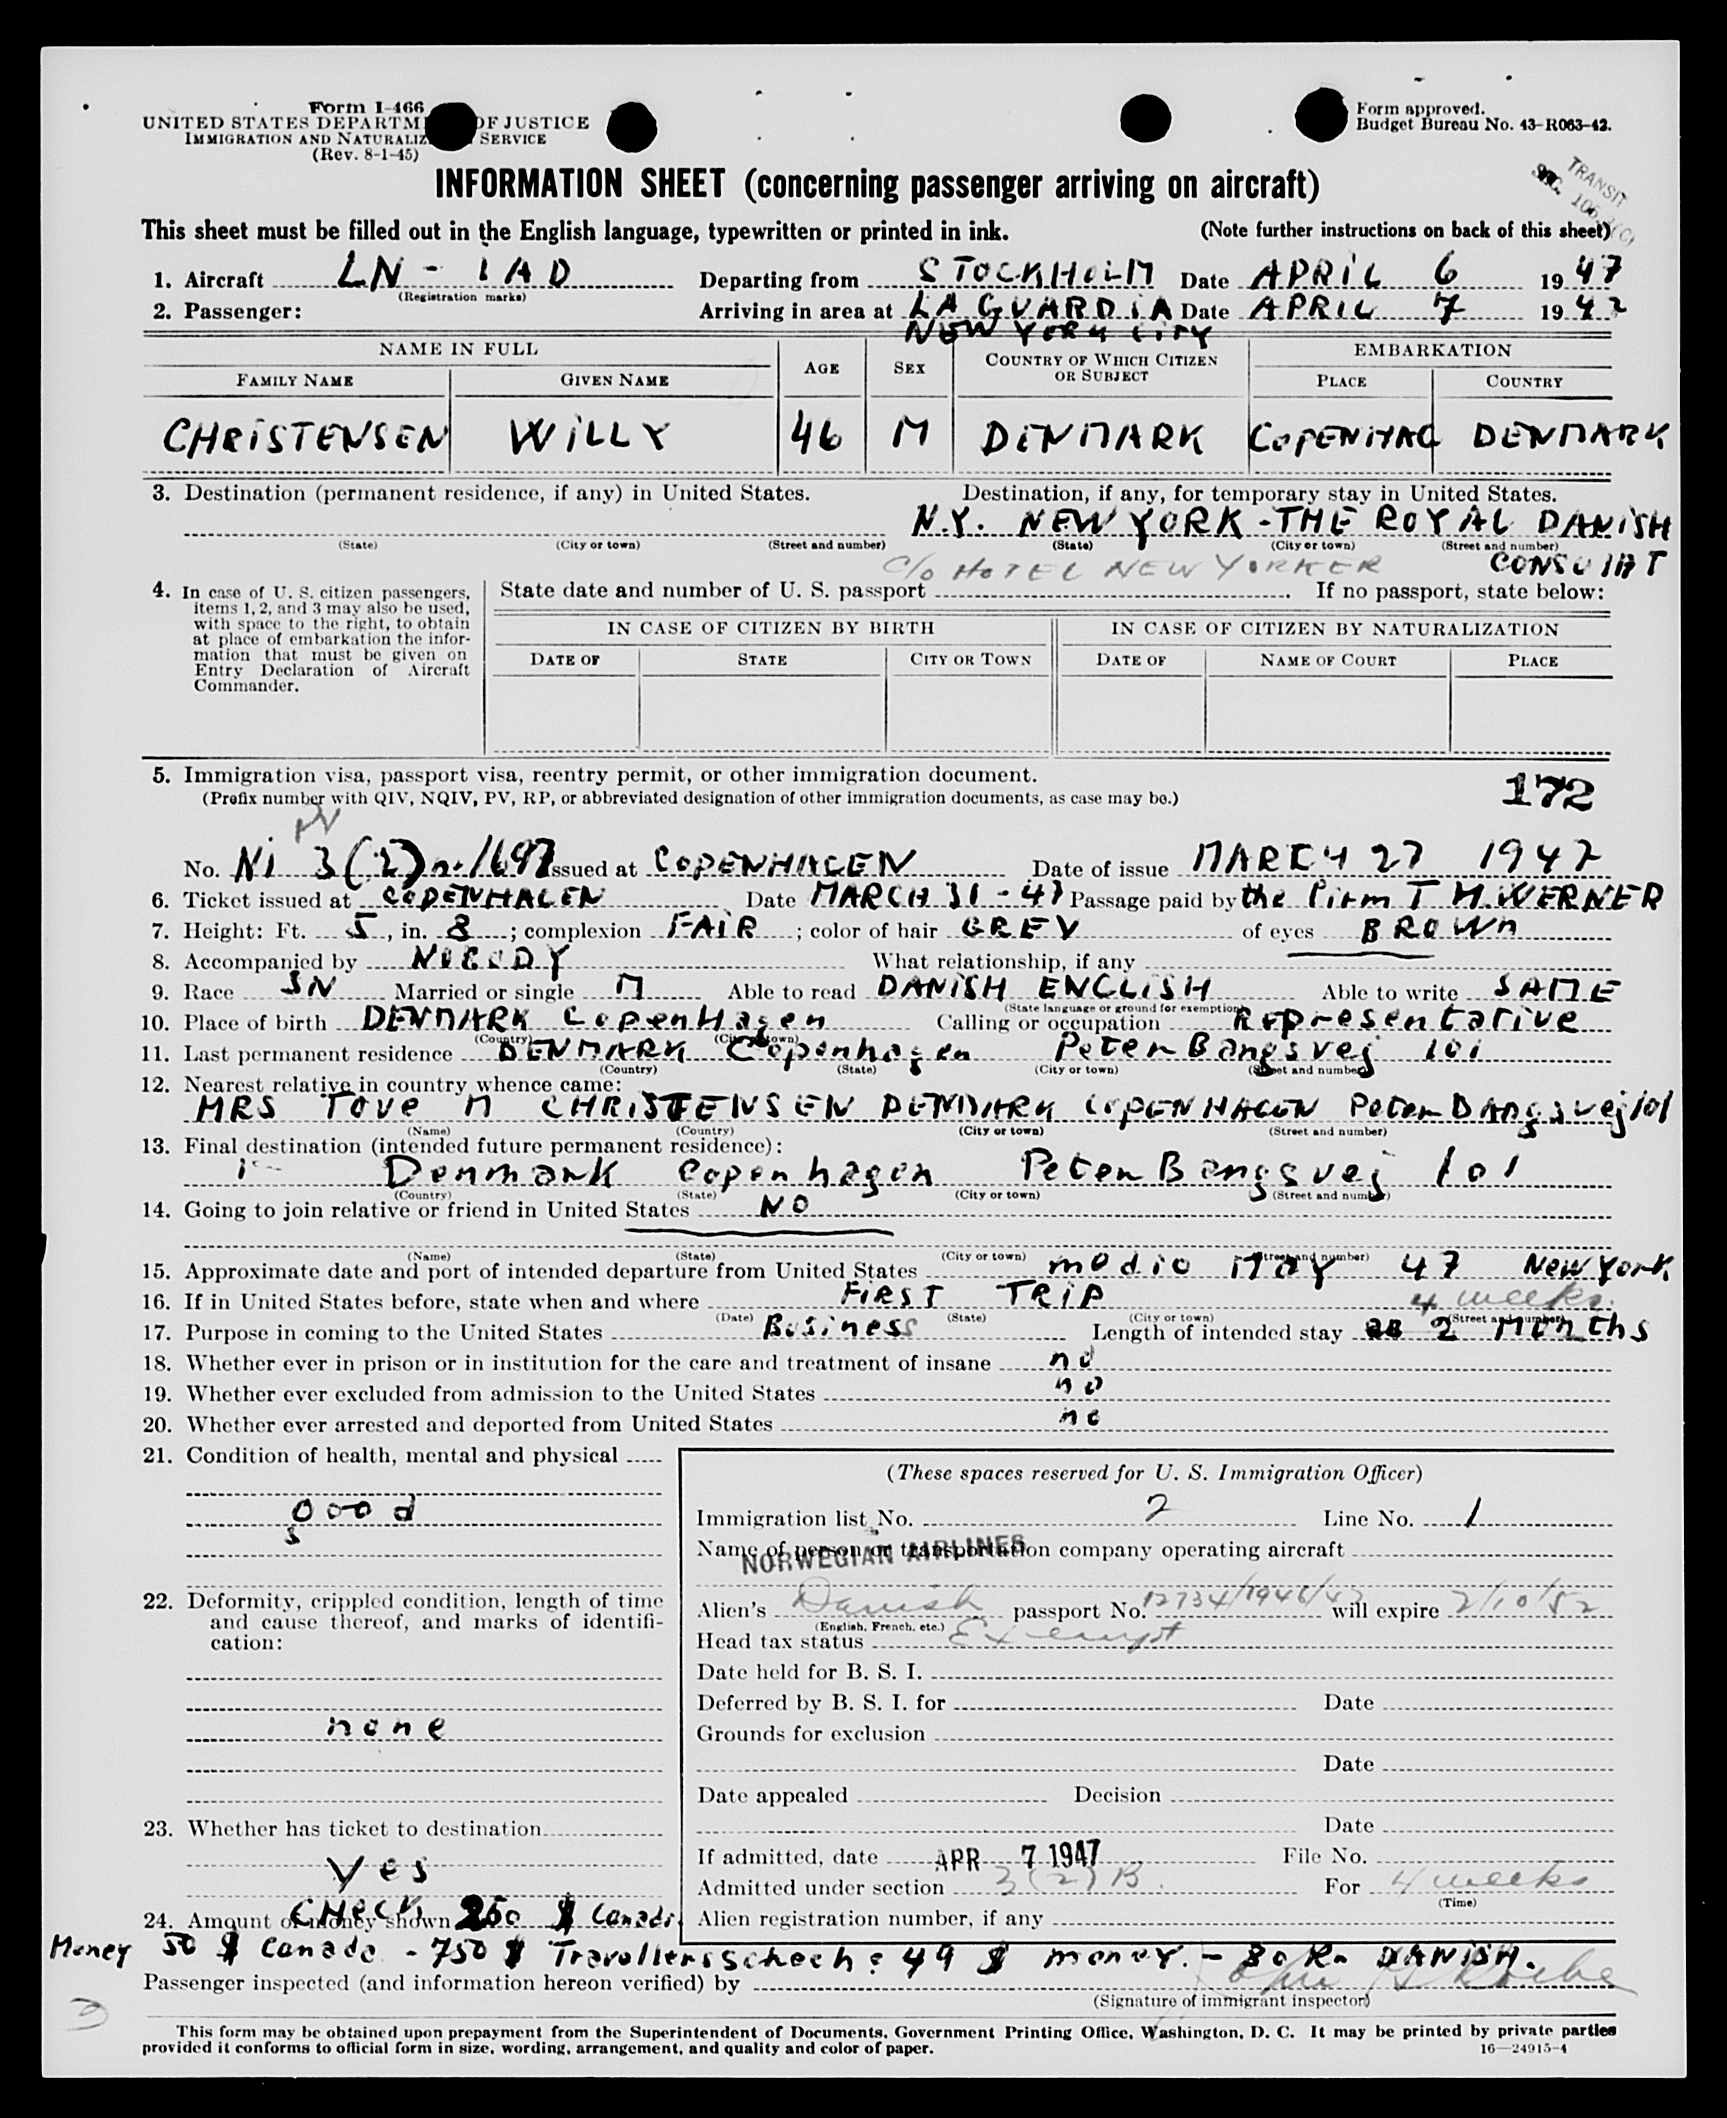 Form I-466
UNITED STATES DEPARTM OF JUSTICE
IMMIGRATION AND NATURALIZ SERVICE
(Rev. 8-1-45)
Form approved.
Budget Bureau No. 43-R063-42.
TRANSIT
INFORMATION SHEET (concerning passenger arriving on aircraft)
This sheet must be filled out in the English language, typewritten or printed in ink. (Note further instructions on back of this sheet)
1. Aircraft LN - IAD Departing from STOCKHOLM Date APRIL 6 1947
(Registration marks)
2. Passenger: Arriving in area at LA GUARDIA Date APRIL 7 1947
NEW YORK CITY
NAME IN FULL AGE SEX COUNTRY OF WHICH CITIZEN OR SUBJECT EMBARKATION
FAMILY NAME GIVEN NAME PLACE COUNTRY
CHRISTENSEN WILLY 46 M DENMARK COPENHAG DENMARK
3. Destination (permanent residence, if any) in United States. Destination, if any, for temporary stay in United States.
N.Y. NEW YORK - THE ROYAL DANISH
(State) (City or town) (Street and number) (State) (City or town) (Street and number)
CONSULAT
C/o HOTEL NEW YORKER
4. In case of U. S. citizen passengers, items 1, 2, and 3 may also be used, with space to the right, to obtain at place of embarkation the information that must be given on Entry Declaration of Aircraft Commander.
State date and number of U. S. passport If no passport, state below:
IN CASE OF CITIZEN BY BIRTH IN CASE OF CITIZEN BY NATURALIZATION
DATE OF STATE CITY OR TOWN DATE OF NAME OF COURT PLACE
5. Immigration visa, passport visa, reentry permit, or other immigration document.
(Prefix number with QIV, NQIV, PV, RP, or abbreviated designation of other immigration documents, as case may be.)
172
PV
No. NI 3 (2) no. 1697 Issued at COPENHAGEN Date of issue MARCH 27 1947
6. Ticket issued at COPENHAGEN Date MARCH 31 - 47 Passage paid by the Firm T M. WERNER
7. Height: Ft. 5, in. 8; complexion FAIR; color of hair GREY of eyes BROWN
8. Accompanied by NOBODY What relationship, if any
9. Race SN Married or single M Able to read DANISH ENGLISH Able to write SAME
(State language or ground for exemption)
10. Place of birth DENMARK CopenHagen Calling or occupation Representative
(Country) (City or town)
11. Last permanent residence DENMARK Copenhagen Peter Bangsvej 101
(Country) (State) (City or town) (Street and number)
12. Nearest relative in country whence came:
MRS Tove M CHRISTENSEN DENMARK COPENHAGEN Peter Bangsvej 101
(Name) (Country) (City or town) (Street and number)
13. Final destination (intended future permanent residence):
Denmark Copenhagen Peter Bangsvej 101
(Country) (State) (City or town) (Street and number)
14. Going to join relative or friend in United States NO
(Name) (State) (City or town) (Street and number)
15. Approximate date and port of intended departure from United States medio May 47 New York
16. If in United States before, state when and where FIRST TRIP
(Date) (State) (City or town) (Street and number)
4 weeks.
17. Purpose in coming to the United States Business Length of intended stay 2 Months
18. Whether ever in prison or in institution for the care and treatment of insane no
19. Whether ever excluded from admission to the United States no
20. Whether ever arrested and deported from United States no
21. Condition of health, mental and physical
good
22. Deformity, crippled condition, length of time and cause thereof, and marks of identification:
none
23. Whether has ticket to destination
yes
(These spaces reserved for U. S. Immigration Officer)
Immigration list No. 2 Line No. 1
Name of person or transportation company operating aircraft
NORWEGIAN AIRLINES
Alien's Danish passport No. 12734/1946/47 will expire 2/10/52
(English, French, etc.)
Head tax status Exempt
Date held for B. S. I.
Deferred by B. S. I. for Date
Grounds for exclusion
Date
Date appealed Decision
Date
If admitted, date APR 7 1947 File No.
Admitted under section 3(2)B. For 4 weeks
(Time)
Alien registration number, if any
24. Amount of money shown CHeck 250 $ Canada
Money 50 $ Canada - 750 $ Travellersscheck: 49 $ money. - 80 Kr DANISH.
Passenger inspected (and information hereon verified) by
(Signature of immigrant inspector)
This form may be obtained upon prepayment from the Superintendent of Documents, Government Printing Office, Washington, D. C. It may be printed by private parties
provided it conforms to official form in size, wording, arrangement, and quality and color of paper. 16—24915-4